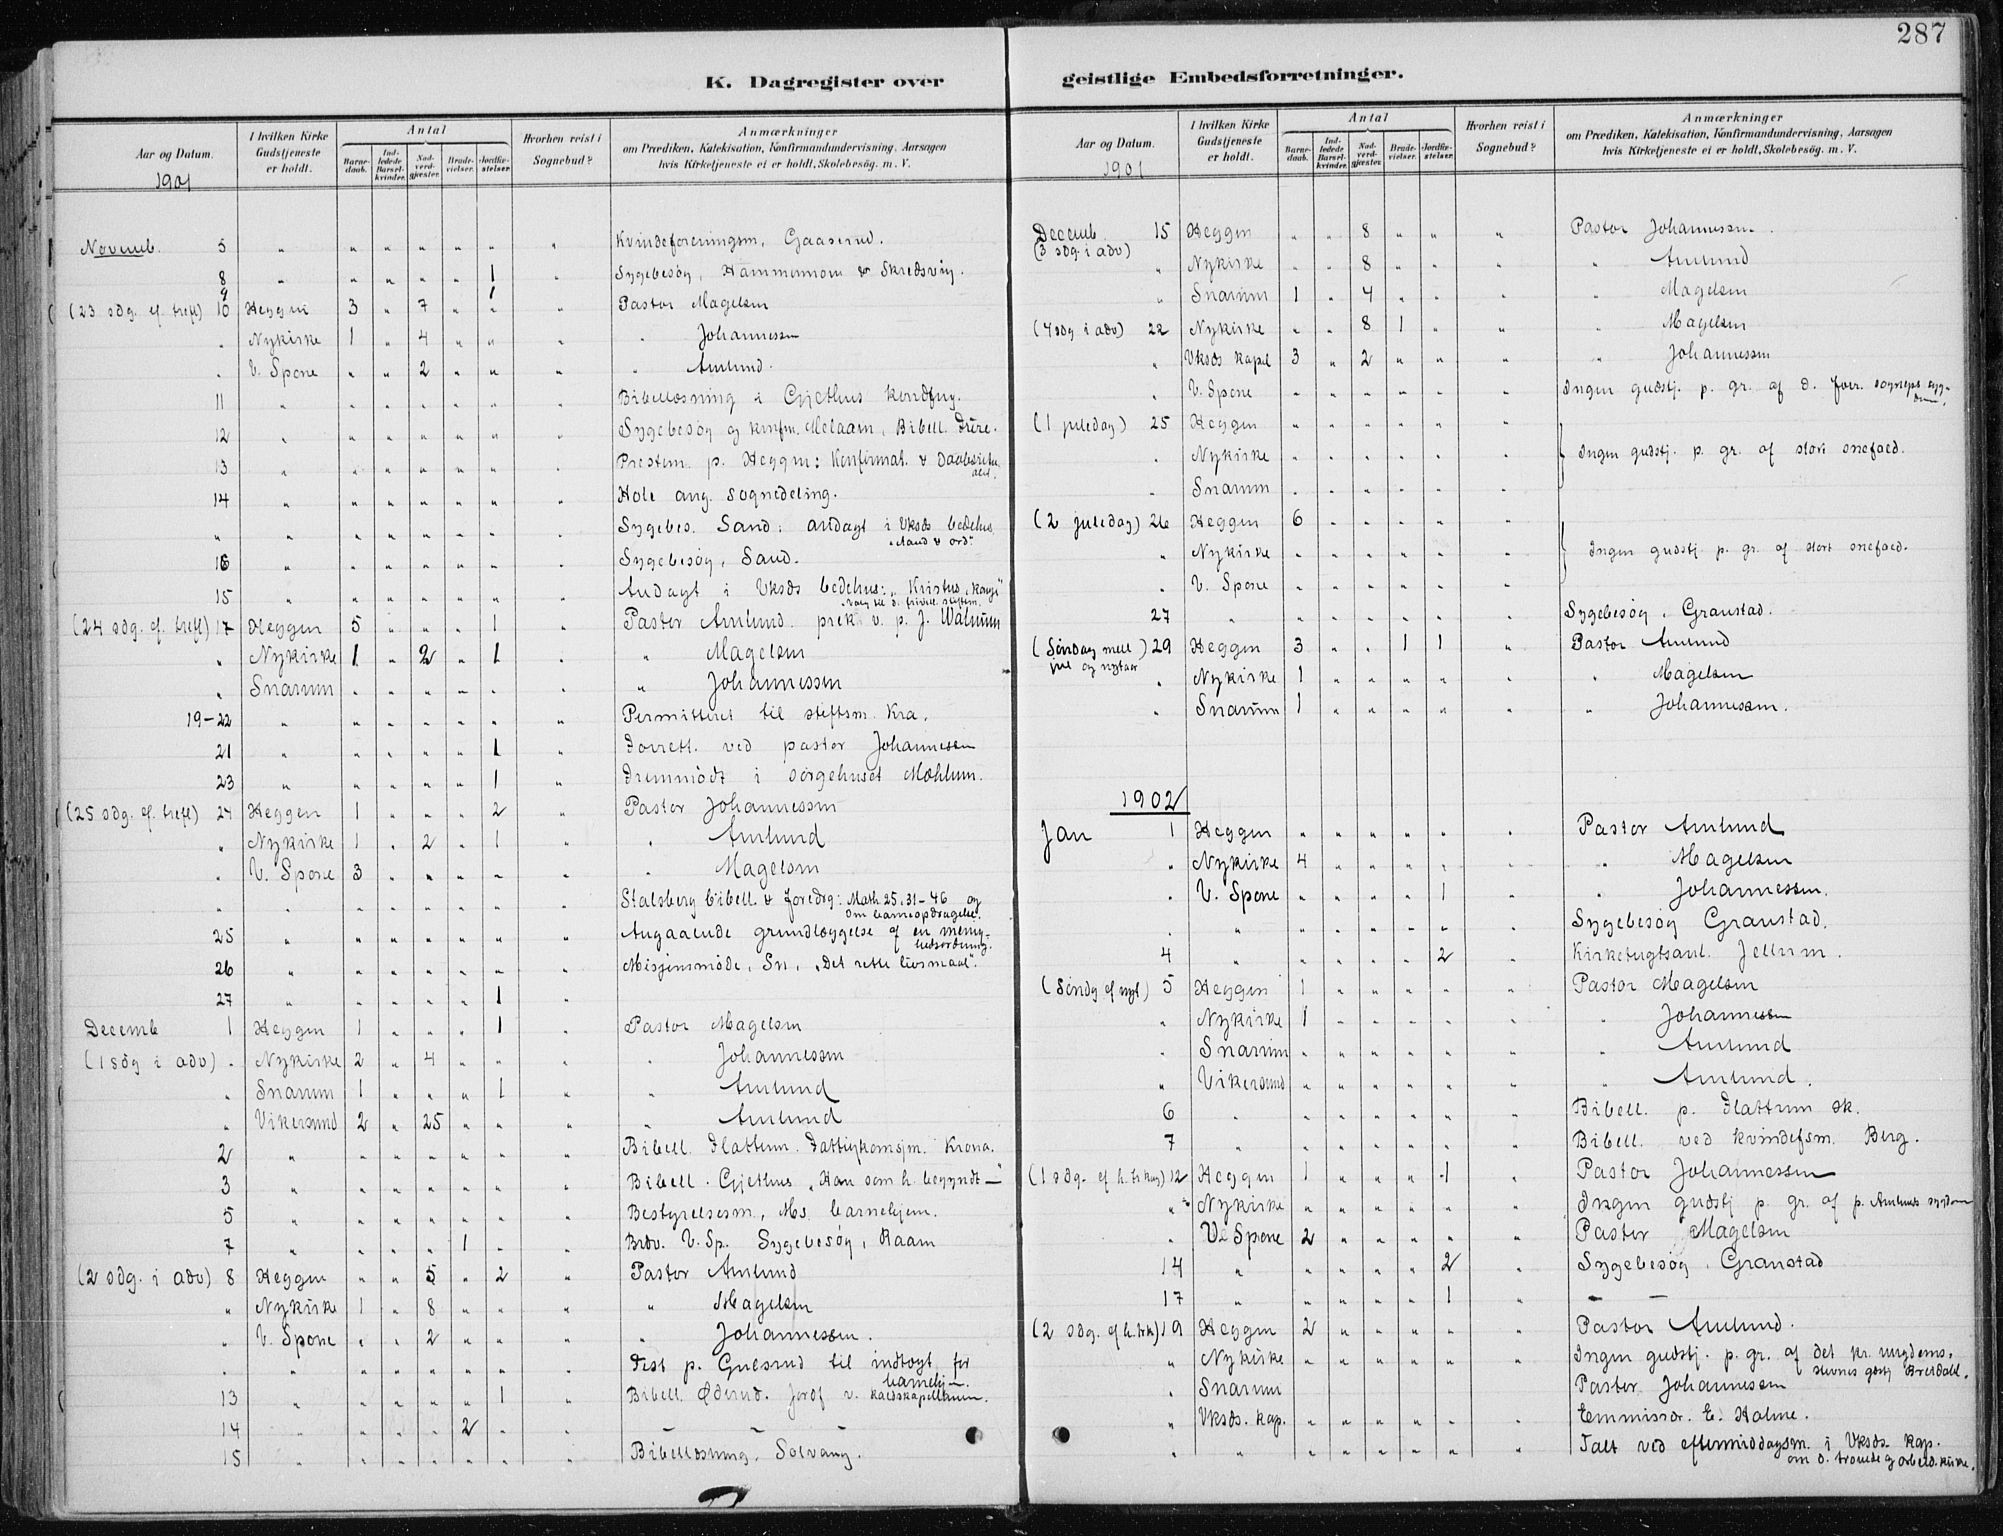 287
K. Dagregister over
Aar og Datum.
I hvilken Kirke Gudstjeneste er holdt.
Antal
Barne-daab.
Ind-ledede Barsel-kvinder.
Nad-verd-gjæster.
Brude-vielser.
Jordfæ-stelser.
Hvorhen reist i Sognebud?
Anmærkninger
om Prædiken, Katekisation, Konfirmandundervisning, Aarsagen
hvis Kirketjeneste ei er holdt, Skolebesøg. m. V.
1901
Novemb. 5 " " " " " " " Kvindeforeningsm. Gaaserud.
8 " " " " " 1 " Sygebesøg, Hammermoen & Skredsvig.
9 1
(23 sdg. ef. trefl) 10 Heggen 3 " 7 " " " Pastor Magelsen
" Nykirke 1 " 4 " " " " Johannessen
" V. Spone " " 2 " " " " Amlund.
11 " " " " " " " Bibellæsning i Gjethus
12 " " " " " " " Sygebesøg og Melaaen, Bibell. Fure.
13 " " " " " " " Prestem. p. Heggen: Konfirmat. &
14 " " " " " " " Hole ang. sognedeling.
" " " " " " " " Sygebes. Sand: andagt i Vksds bedehus
"Aand & ord"
16 " " " " " " " Sygebesøg, Sand.
15 " " " " " " " Andagt i Vksds bedehus: "Kristus, konge"
(24 sdg. ef. trefl) 17 Heggen 5 " " " 1 " Pastor Amlund. præk. v. p. J. Walnum
" Nykirke 1 " 2 " 1 " " Magelsen
" Snarum " " " " " " " Johannessen
19-22 " " " " " " " Permitteret til stiftsm. Kra.
21 " " " " " 1 " Forrett. ved pastor Johannessen
23 " " " " " 1 " Fremmødt i sørgehuset Mæhlum.
(25 sdg. ef. trefl) 24 Heggen 1 " " " 2 " Pastor Johannessen
" Nykirke 1 " 2 " 1 " " Amlund
" V. Spone 3 " " " " " " Magelsen
" " " " " " " " Stalsberg bibell. & foredrg: Math 25.31-46 og
om barneopdragelse.
25 " " " " " " " Angaaende grundlæggelse af en menig-
hedsordning.
26 " " " " " " " Misjonsmøde, Sn. "Det rette livsmaal".
27 " " " " " 1 "
Decemb 1 Heggen 1 " " " 1 " Pastor Magelsen
(1 sdg i adv) " Nykirke 2 " 4 " " " " Johannessen
" Snarum 1 " " " 1 " " Amlund
" Vikersund 2 " 25 " " " " Amlund
2 " " " " " " " Bibell. Flattum. Fattigkomsjm. Krona.
3 " " " " " " " Bibell. Gjethus "Han som h. begyndt—"
5 " " " " " " " Bestyrelsesm., Ms barnehjem.
7 " " " " 1 " " Brdv. V. Sp. Sygebesøg, Raaen
(2 sdg. i adv) 8 Heggen " " 5 " 2 " Pastor Amlund
" Nykirke 1 " 8 " " " " Magelsen
" V. Spone " " 2 " " " " Johannessen.
" " " " " " " " Fest p. Gulsrud til indtægt for
barnehjem.
13 " " " " " 1 " Bibell. Øderud. Jordf v. kaldskapellanen.
14 " " " " 2 " " — —
15 " " " " " " " Bibellæsning, Solvang.
geistlige Embedsforretninger.
Aar og Datum.
I hvilken Kirke Gudstjeneste er holdt.
Antal
Barne-daab.
Ind-ledede Barsel-kvinder.
Nad-verd-gjæster.
Brude-vielser.
Jordfæ-stelser.
Hvorhen reist i Sognebud?
Anmærkninger
om Prædiken, Katekisation, Konfirmandundervisning, Aarsagen
hvis Kirketjeneste ei er holdt, Skolebesøg. m. V.
1901
Decemb 15 Heggen " " 8 " " " Pastor Johannessen
(3 sdg i adv) " Nykirke " " 8 " " " " Amlund
" Snarum 1 " 4 " " " " Magelsen
(4 sdg i adv) 22 Nykirke " " 8 1 " " " Magelsen
" Vksds kapel 3 " 2 " " " " Johannessen
" V. Spone " " " " " " Ingen gudstj. p. gr. af d. forr. sogneps syg-
dom.
(1 juledag) 25 Heggen " " " " " "
" Nykirke " " " " " " Ingen gudstj. p. gr. af stort snefaed.
" Snarum " " " " " "
(2 juledag) 26 Heggen 6 " " " " "
" Nykirke " " " " " " Ingen gudstj p. gr. af stort snefaed.
" V. Spone " " " " " "
27 " " " " " " " Sygebesøg, Granstad.
(Søndag mell ) 29 Heggen 3 " " 1 1 " Pastor Amlund
jul og nytaar " Nykirke 1 " " " " " " Magelsen
" Snarum 1 " " " " " " Johannessen.
1902
Jan 1 Heggen " " " " " " Pastor Amlund
" Nykirke 4 " " " " " " Magelsen
" V. Spone " " " " 1 " " Johannessen.
" " " " " " " " Sygebesøg Granstad.
4 " " " " " 2 " Kirketugtsanl. Jellum.
(Søndg ef nyt) 5 Heggen 1 " " " " " Pastor Magelsen
" Nykirke 1 " " " " " " Johannessen
" Snarum " " " " " " " Amlund
" Vikersund " " " " " " " Amlund.
6 " " " " " " " Bibell. p. Flattum sk.
7 " " " " " " " Bibell. ved kvindefsm. Berg.
(1 sdg. ef h. tr kng) 12 Heggen 1 " " " 1 " Pastor Johannessen
" Nykirke " " " " " " Ingen gudstj p. gr. af p. Amlunds sygdom
" V. Spone 2 " " " " " Pastor Magelsen
14 " " " " " 2 " Sygebesøg. Granstad
17 " " " " " 1 " — —
(2 sdg. ef h. trk) 19 Heggen 2 " " " " " Pastor Amlund.
" Nykirke " " " " " " Ingen gudstj. p. gr. af det kr. ungdoms-
stevnes gdstj Breidabl.
" Snarum Pastor Johannessen
" Vksds. kap. " " " " " " Emmissær. E. Holme.
" " " " " " " " Talt ved eftermiddagsm. i Vksds kap.
om d. troende og arbeid. kirke.